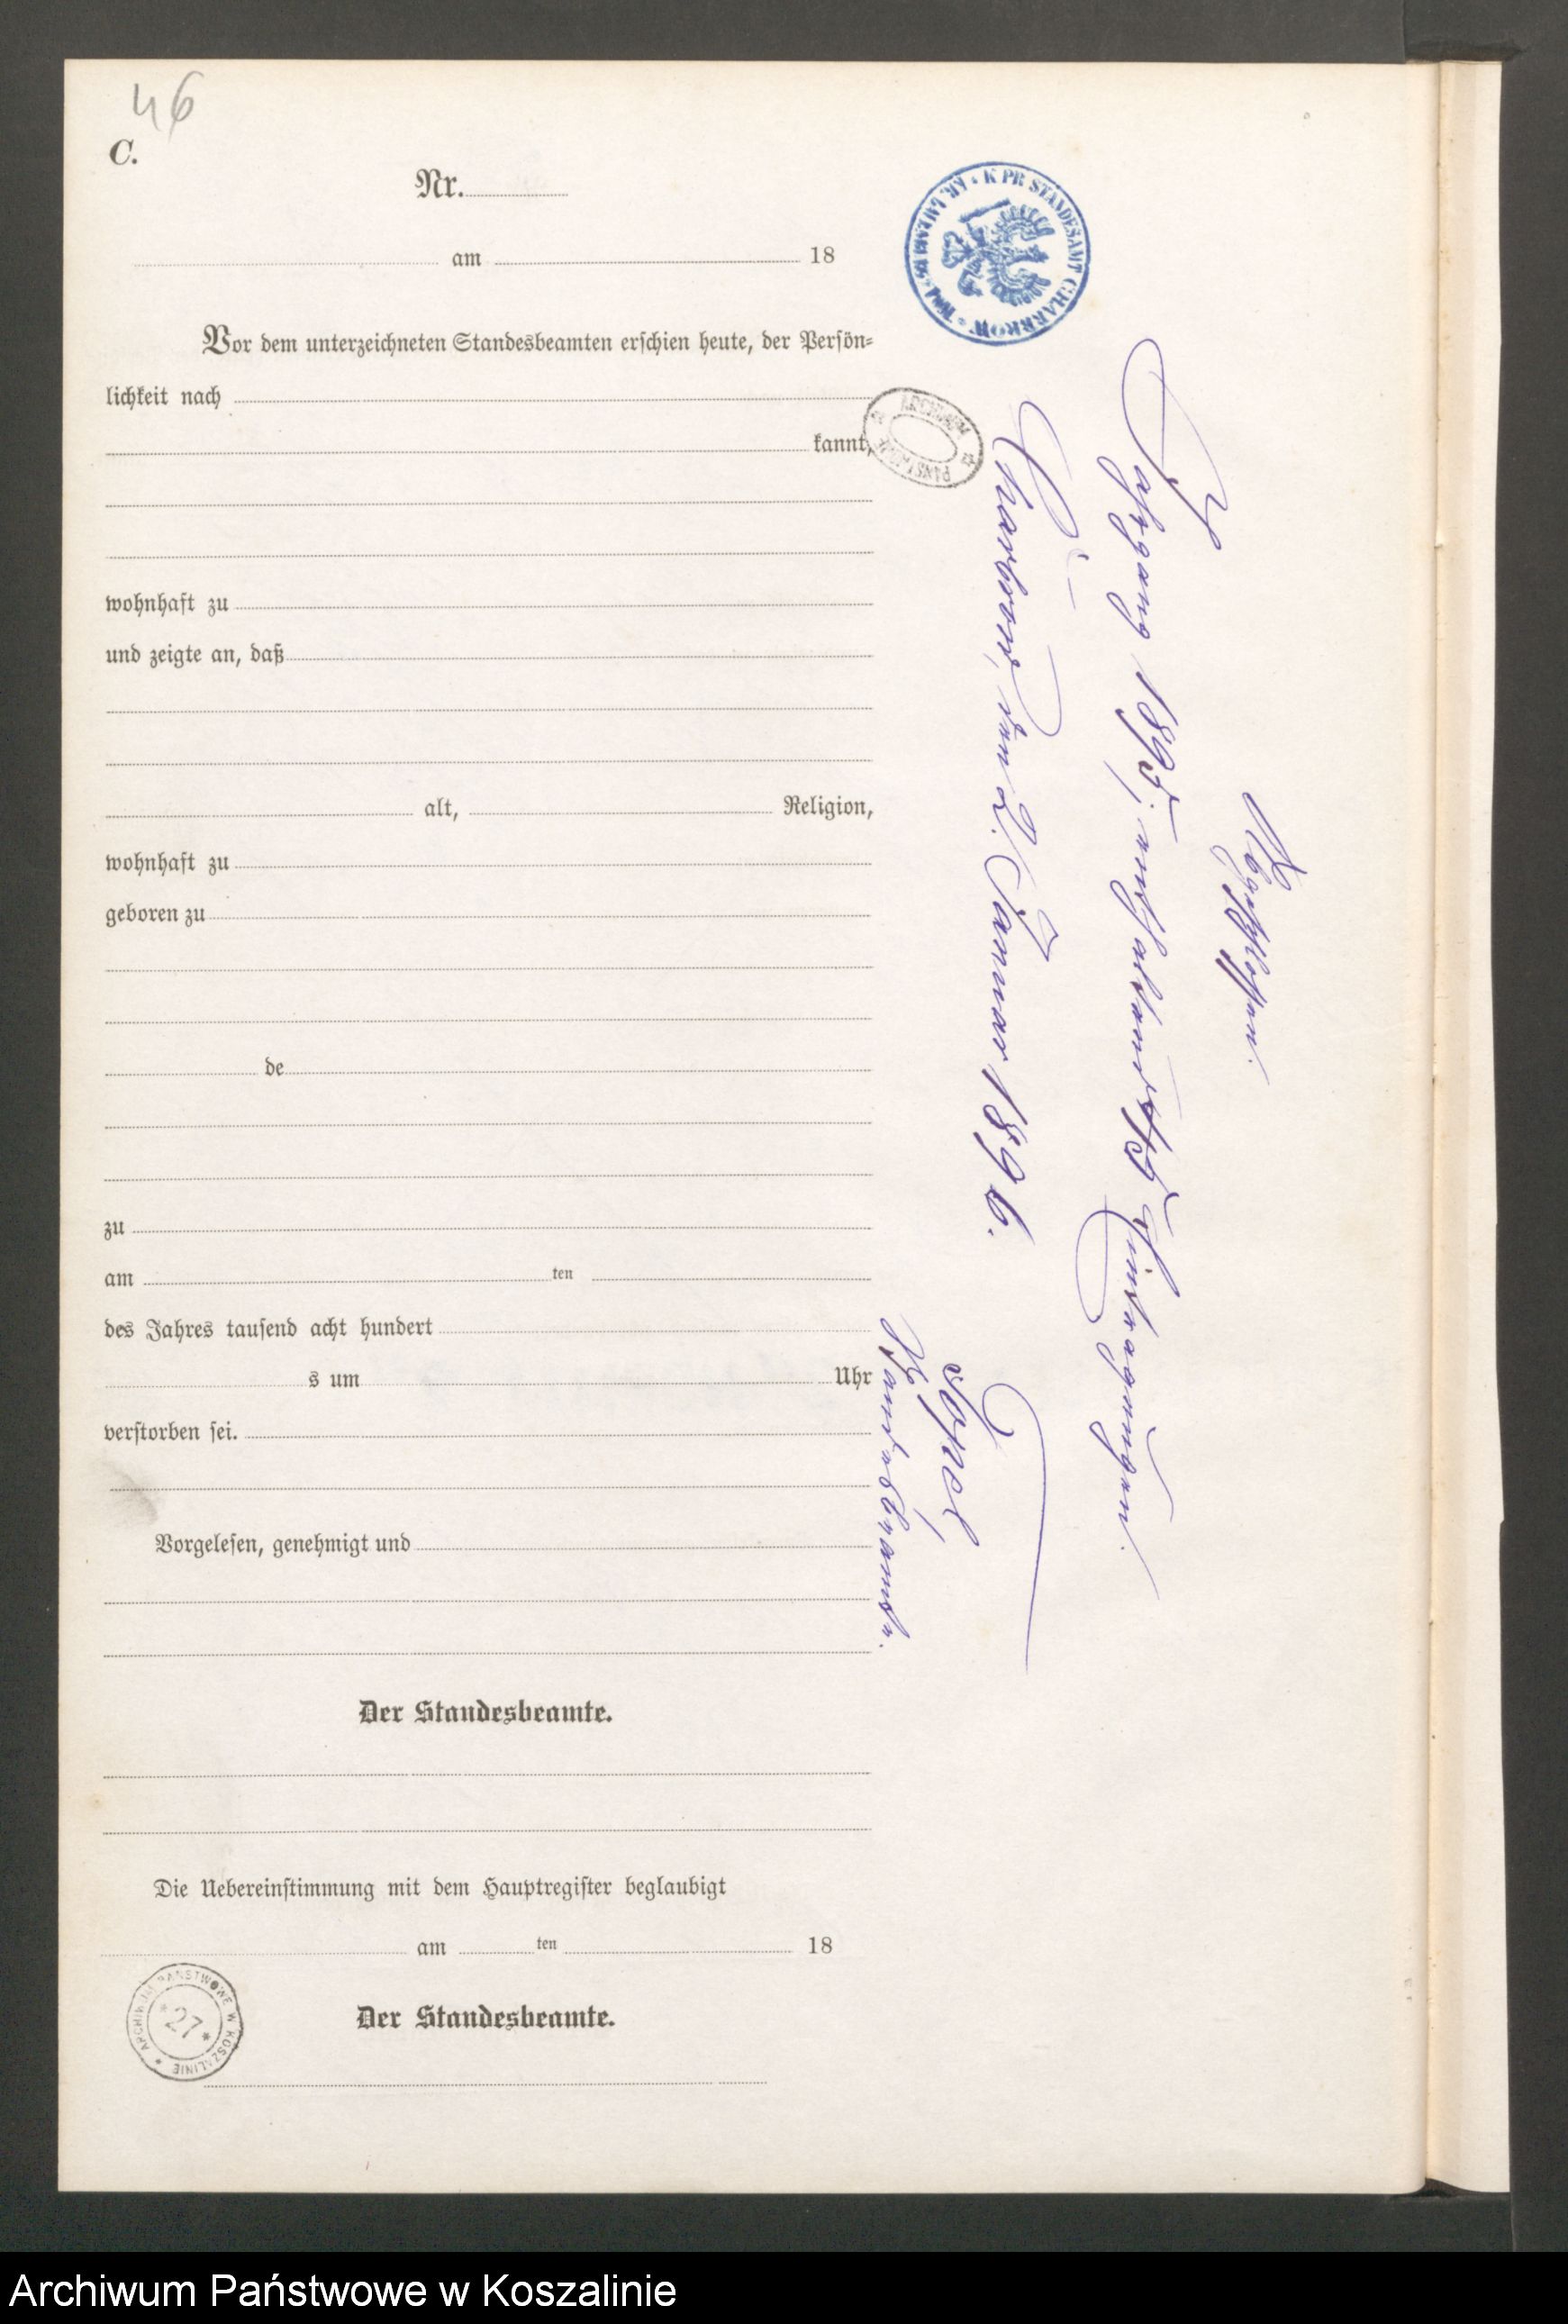 46
C.
Nr.
am 18
Vor dem unterzeichneten Standesbeamten erschien heute, der Persön-
lichkeit nach
kannt,
wohnhaft zu
und zeigte an, daß
alt, Religion,
wohnhaft zu
geboren zu
de
zu
am ten
des Jahres tausend acht hundert
s um Uhr
verstorben sei.
Vorgelesen, genehmigt und
Der Standesbeamte.
Die Uebereinstimmung mit dem Hauptregister beglaubigt
am ten 18
Der Standesbeamte.
ARCHIWUM PAŃSTWOWE W KOSZALINIE
*27*
K PR STANDESAMT CHARKOW
ARCHIWUM PAŃSTWOWE
Abgeschlossen.
Jahrgang 1895, enthaltend 45 Eintragungen.
Charkow, den 2. Januar 1896.
Standesbeamte.
Archiwum Państwowe w Koszalinie